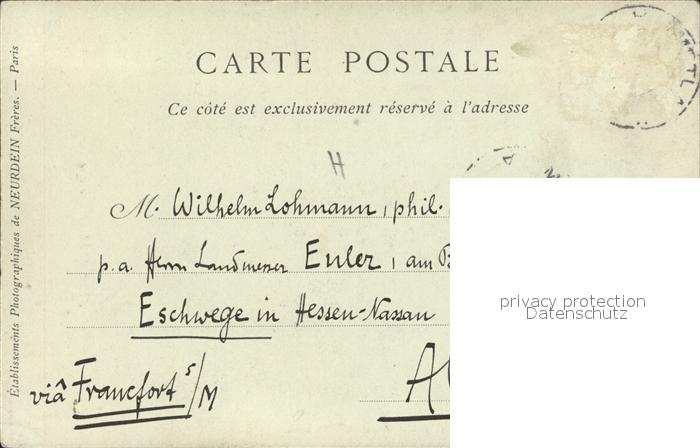 CARTE POSTALE
Ce côté est exclusivement réservé à l'adresse
H
M. Wilhelm Lohmann, phil.
p.a. Herrn Landmesser Euler, am B
Eschwege in Hessen-Nassau
viâ Francfort s/M
Al
privacy protection
Datenschutz
Établissements Photographiques de NEURDEIN Frères. — Paris